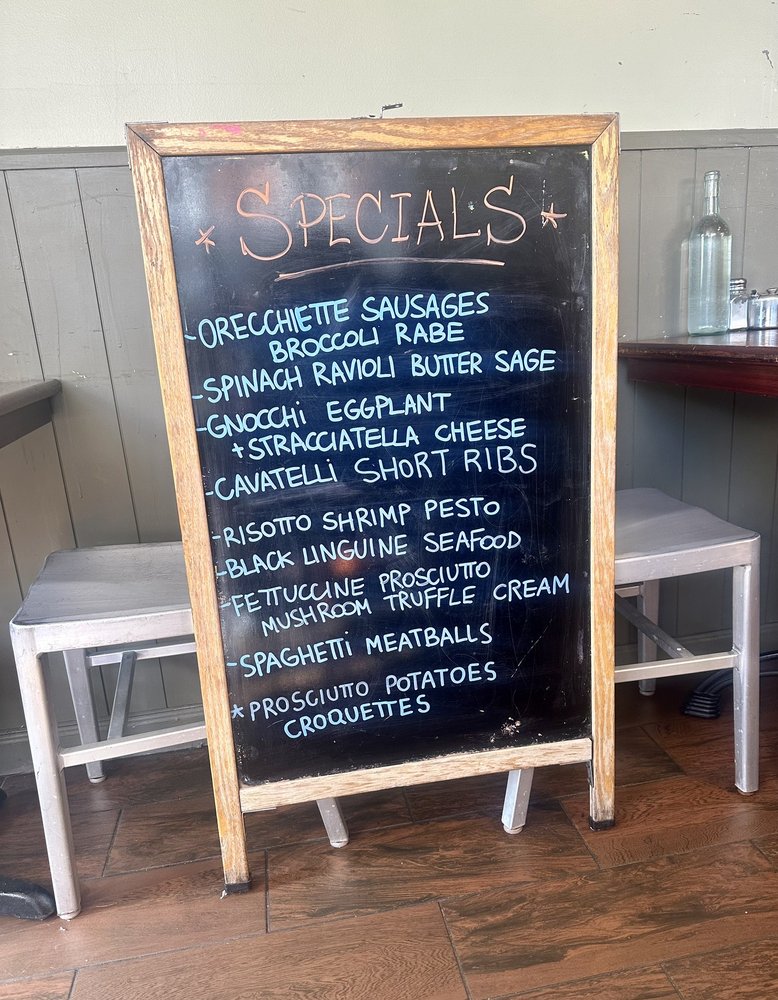 * SPECIALS *
-ORECCHIETTE SAUSAGES
BROCCOLI RABE
-SPINACH RAVIOLI BUTTER SAGE
-GNOCCHi EGGPLANT
+STRACCIATELLA CHEESE
-CAVATELLi SHORT RIBS
-RISOTTO SHRIMP PESTO
-BLACK LINGUINE SEAFOOD
-FETTUCCINE PROSCIUTTO
MUSHROOM TRUFFLE CREAM
-SPAGHETTi MEATBALLS
*PROSCIUTTO POTATOES
CROQUETTES